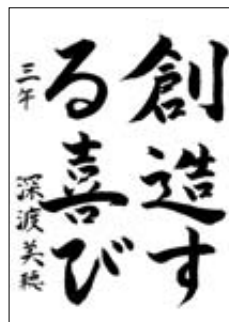 創造す
る喜び
三年 深渡英聡